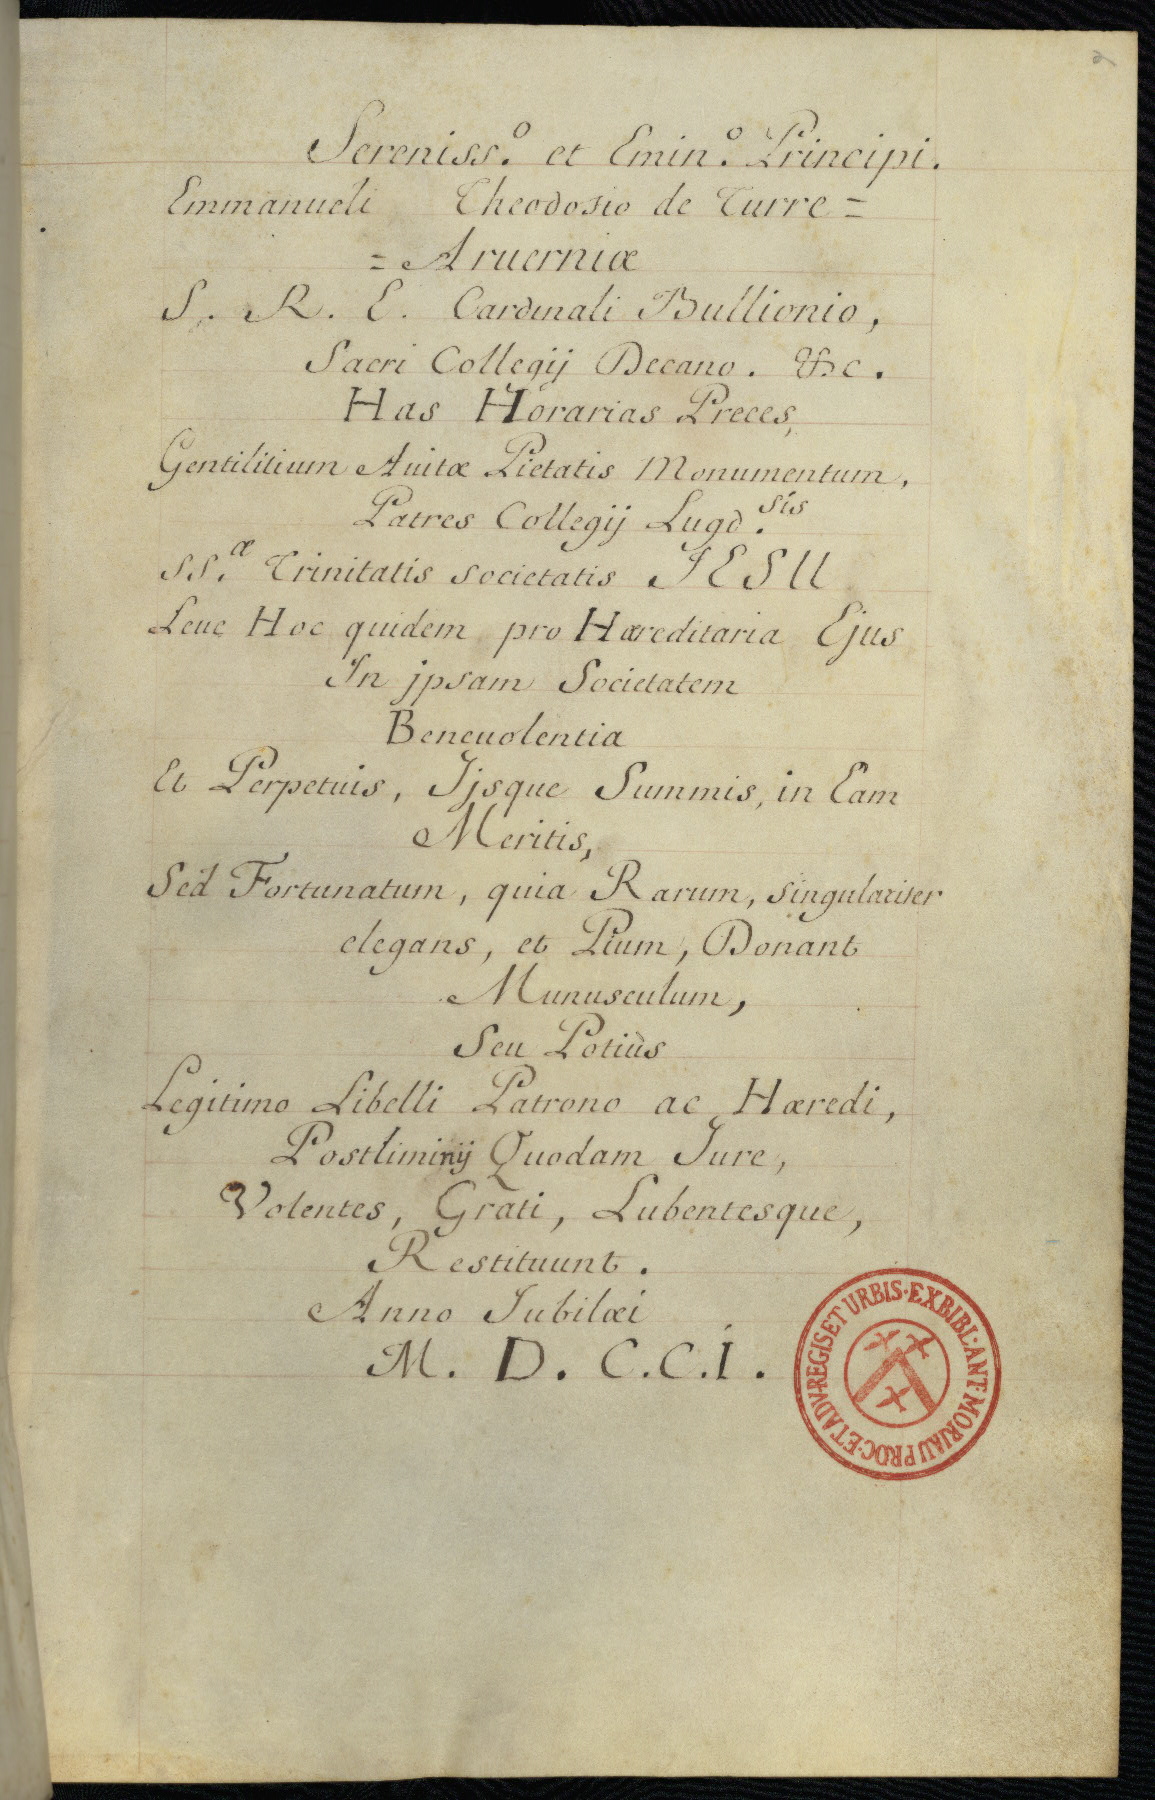 Sereniss.o et Emin.o Principi.
Emmanueli Theodosio de Turre =
= Aruerniæ
S. R. E. Cardinali Bullionio,
Sacri Collegij Decano. &c.
Has Horarias Preces,
Gentilitium Auitæ Pietatis Monumentum,
Patres Collegij Lugd.sis
SS.æ Trinitatis societatis JESU
Leue Hoc quidem pro Hæreditaria Ejus
In jpsam Societatem
Beneuolentia
Et Perpetuis, Ijsque Summis, in Eam
Meritis,
Sed Fortunatum, quia Rarum, singulariter
elegans, et Pium, Donant
Munusculum,
Seu Potiùs
Legitimo Libelli Patrono ac Hæredi,
Postliminij Quodam Jure,
Volentes, Grati, Lubentesque,
Restituunt.
Anno Jubilæi
M. D. C.C.I.
EX BIBL. ANT. MORIAU PROC. ET ADV. REGIS ET URBIS.